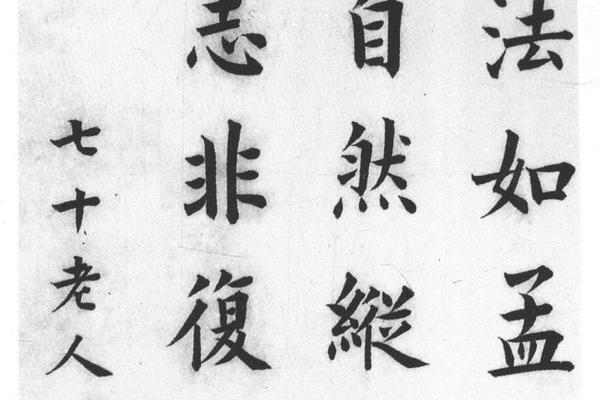 法如孟
自然縱
志非復
七十老人